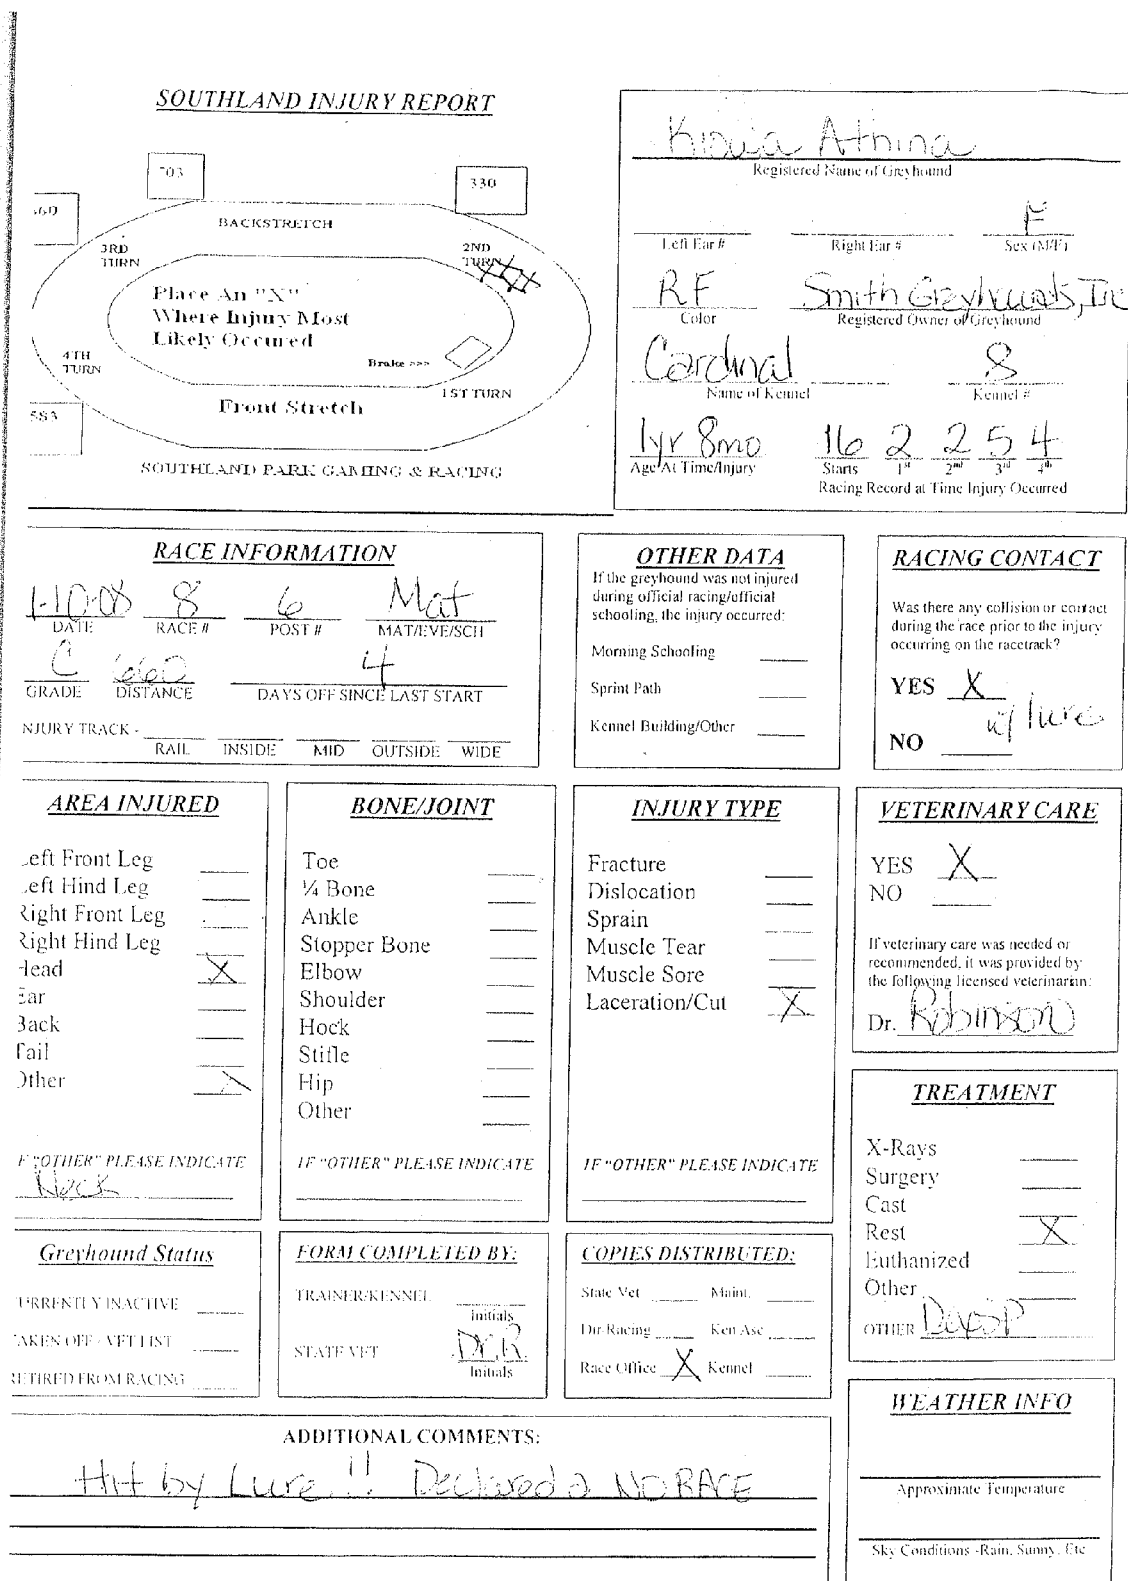 SOUTHLAND INJURY REPORT
703
330
BACKSTRETCH
3RD TURN
2ND TURN
Place An "X"
Where Injury Most
Likely Occured
4TH TURN
Brake >>>
1ST TURN
583
Front Stretch
SOUTHLAND PARK GAMING & RACING
Kiowa Athina
Registered Name of Greyhound
F
Left Ear # Right Ear # Sex (M/F)
RF Smith Greyhounds, Inc
Color Registered Owner of Greyhound
Cardinal 8
Name of Kennel Kennel #
1yr 8mo 16 2 2 5 4
Age At Time/Injury Starts 1st 2nd 3rd 4th
Racing Record at Time Injury Occurred
RACE INFORMATION
1-10-08 8 6 Mat
DATE RACE # POST # MAT/EVE/SCH
C 660 4
GRADE DISTANCE DAYS OFF SINCE LAST START
NJURY TRACK -
RAIL INSIDE MID OUTSIDE WIDE
OTHER DATA
If the greyhound was not injured
during official racing/official
schooling, the injury occurred:
Morning Schooling
Sprint Path
Kennel Building/Other
RACING CONTACT
Was there any collision or contact
during the race prior to the injury
occurring on the racetrack?
YES X
w/ lure
NO
AREA INJURED
eft Front Leg
eft Hind Leg
Right Front Leg
Right Hind Leg
Head X
Ear
Back
Tail
Other X
IF "OTHER" PLEASE INDICATE
Neck
BONE/JOINT
Toe
¼ Bone
Ankle
Stopper Bone
Elbow
Shoulder
Hock
Stifle
Hip
Other
IF "OTHER" PLEASE INDICATE
INJURY TYPE
Fracture
Dislocation
Sprain
Muscle Tear
Muscle Sore
Laceration/Cut X
IF "OTHER" PLEASE INDICATE
VETERINARY CARE
YES X
NO
If veterinary care was needed or
recommended, it was provided by
the following licensed veterinarin:
Dr. Robinson
TREATMENT
X-Rays
Surgery
Cast
Rest X
Euthanized
Other
OTHER
Greyhound Status
URRENTLY INACTIVE
TAKEN OFF - VET LIST
RETIRED FROM RACING
FORM COMPLETED BY:
TRAINER/KENNEL
Initials
STATE VET DCR
Initials
COPIES DISTRIBUTED:
State Vet Maint.
Dir-Racing Ken Asc
Race Office X Kennel
WEATHER INFO
Approximate Temperature
Sky Conditions -Rain, Sunny, Etc
ADDITIONAL COMMENTS:
Hit by Lure !! Declared a NO RACE